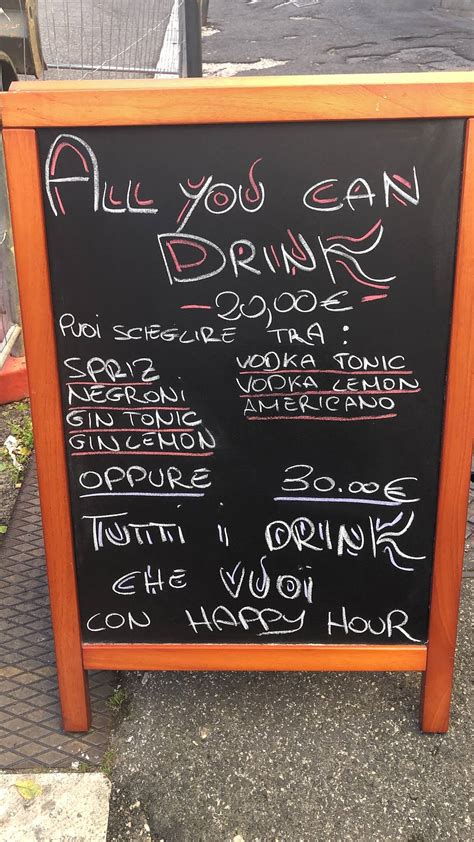 ALL YOU CAN
DRINK
- 20,00€ -
PUOI SCIEGLIRE TRA :
SPRIZ
NEGRONI
GIN TONIC
GIN LEMON
VODKA TONIC
VODKA LEMON
AMERICANO
OPPURE 30.00€
TUTTI I DRINK
CHE VUOI
CON HAPPY HOUR